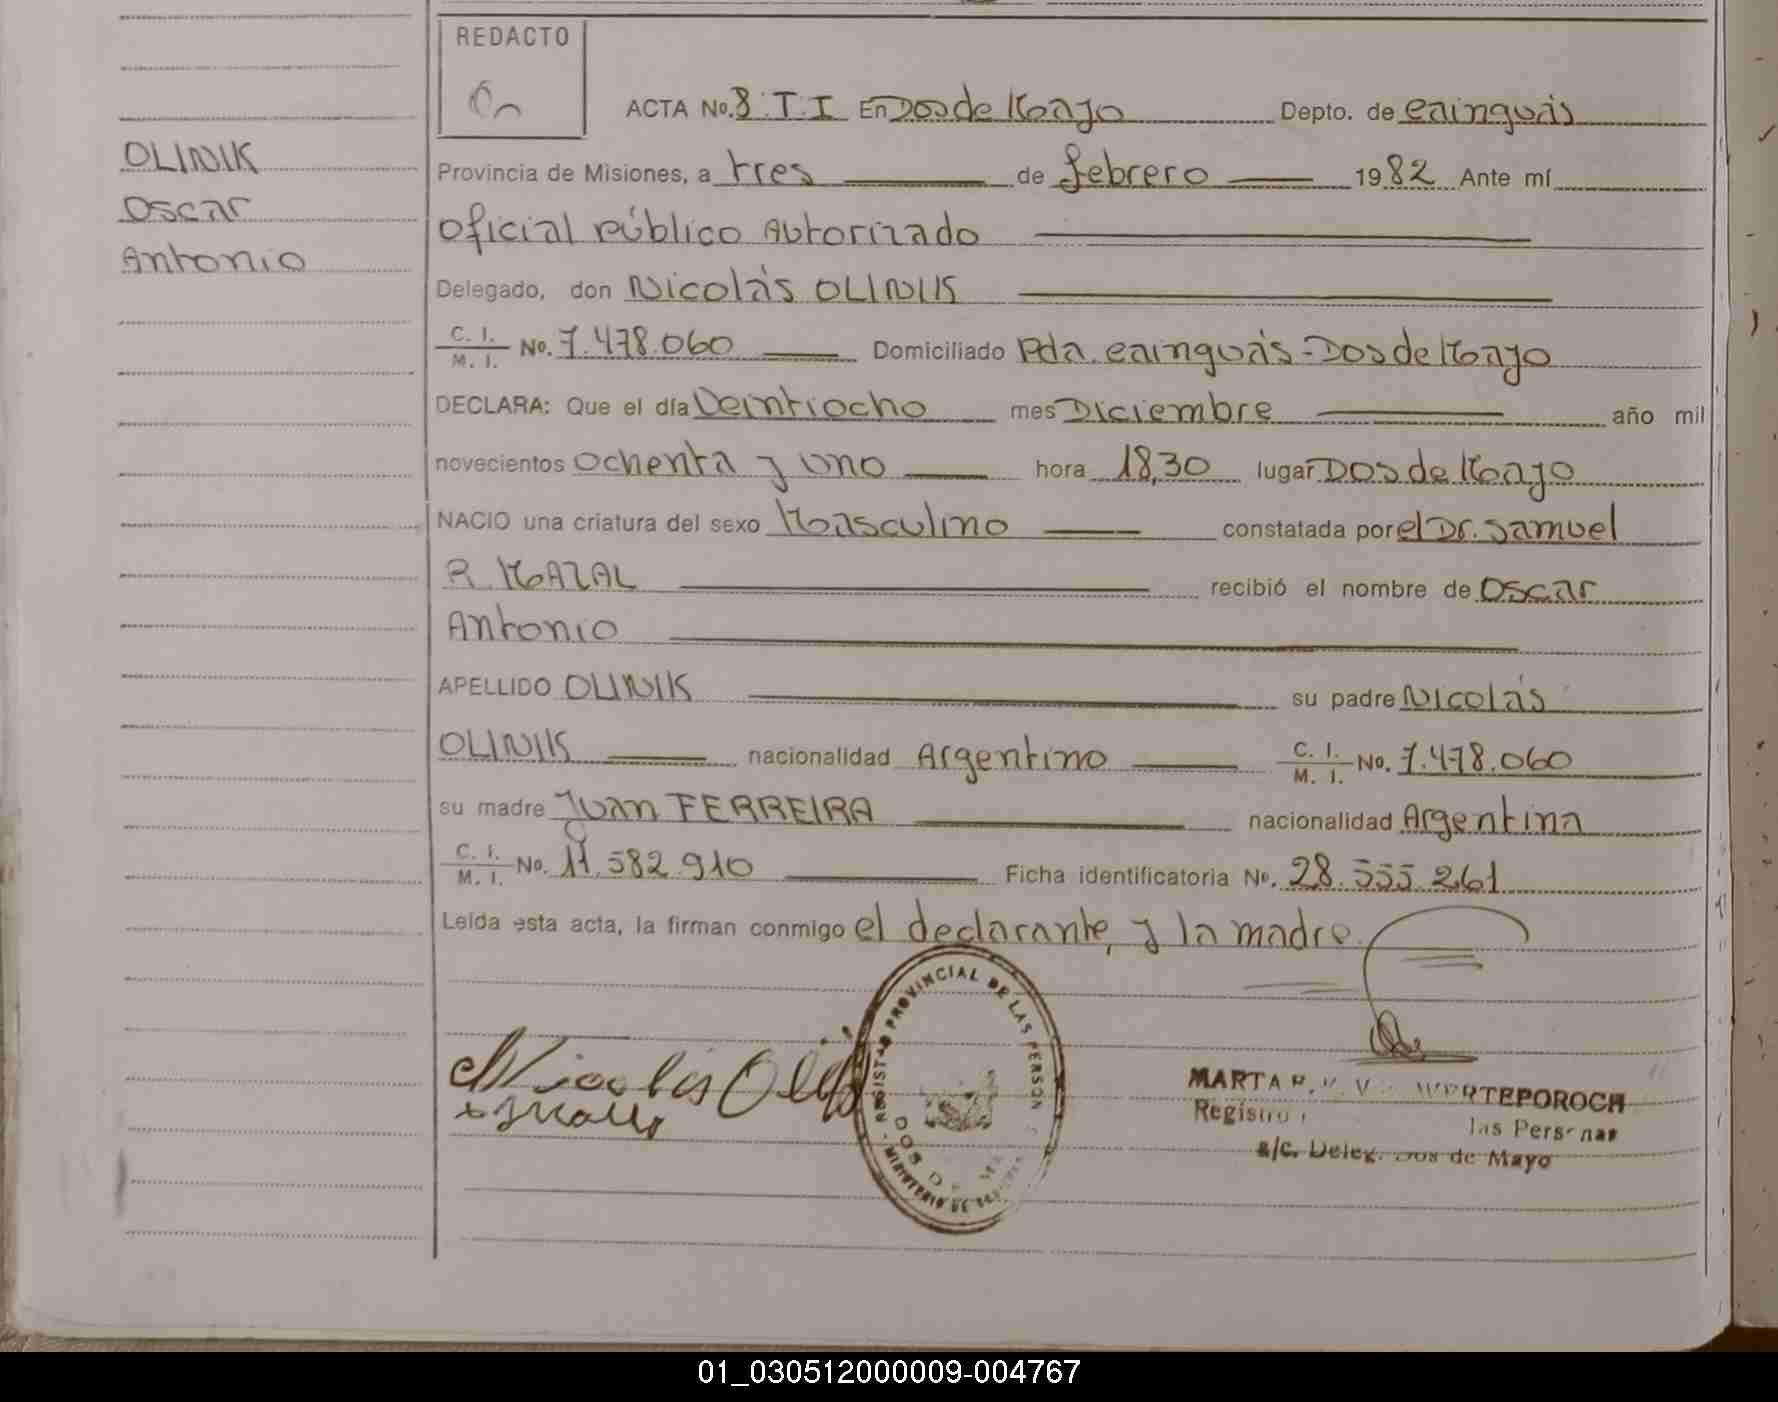 REDACTO
ACTA No. 8.T.I En Dos de Mayo Depto. de Cainguás
OLINIK
Oscar
Antonio
Provincia de Misiones, a tres de febrero 1982 Ante mí
Oficial público Autorizado
Delegado, don Nicolás OLINIK
C. I.
M. I. No. 7.478.060 Domiciliado Pda. Cainguás - Dos de Mayo
DECLARA: Que el día Veintiocho mes Diciembre año mil
novecientos ochenta y uno hora 18,30 lugar Dos de Mayo
NACIO una criatura del sexo Masculino constatada por el Dr. Samuel
R. MAZAL recibió el nombre de Oscar
Antonio
APELLIDO OLINIK su padre Nicolás
OLINIK nacionalidad Argentino C. I.
M. I. No. 7.478.060
su madre Juan FERREIRA nacionalidad Argentina
C. I.
M. I. No. 11.582.910 Ficha identificatoria No. 28.555.261
Leída esta acta, la firman conmigo el declarante, y la madre.
PROVINCIAL DE LAS PERSON
Nicolás
MARTA WERTEPOROCH
Registro las Personas
a/c. Deleg. Dos de Mayo
DOS DE MA
MINISTERIO DE
01_030512000009-004767